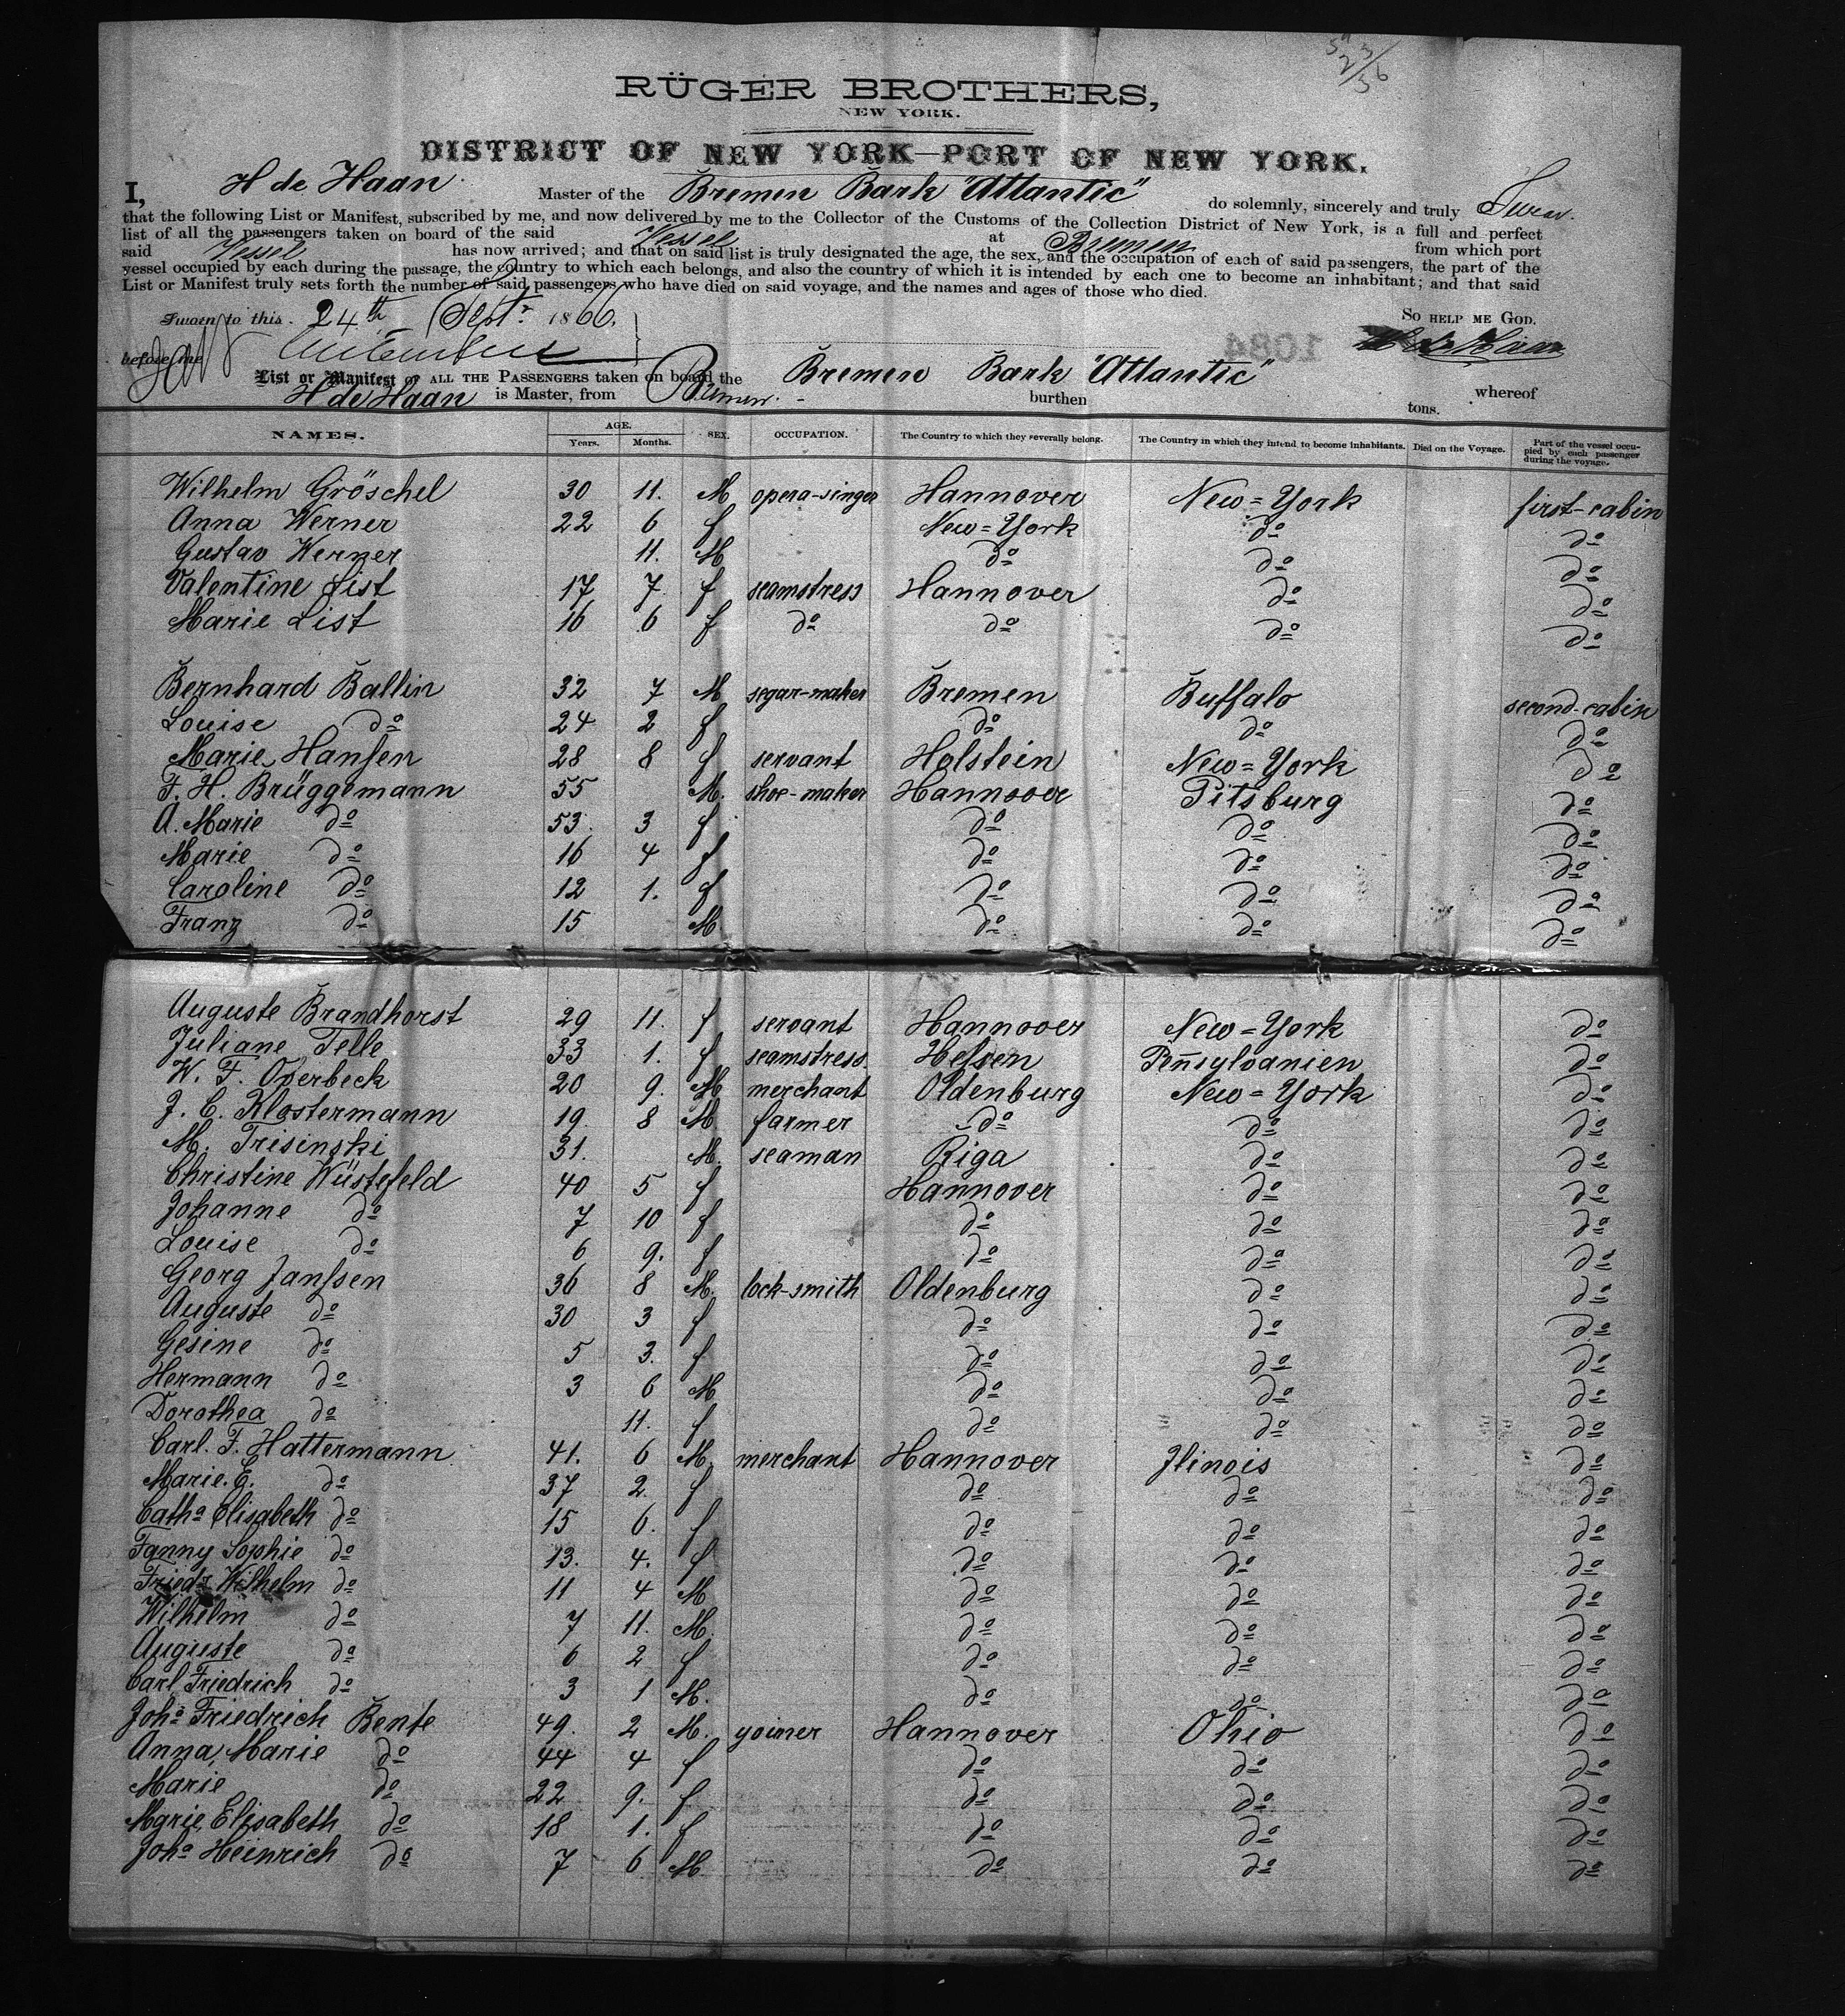 RÜGER BROTHERS,
NEW YORK.
DISTRICT OF NEW YORK—PORT OF NEW YORK.
I, H de Haan Master of the Bremen Bark "Atlantic" do solemnly, sincerely and truly Swear.
that the following List or Manifest, subscribed by me, and now delivered by me to the Collector of the Customs of the Collection District of New York, is a full and perfect
list of all the passengers taken on board of the said Vessel at Bremen from which port
said Vessel has now arrived; and that on said list is truly designated the age, the sex, and the occupation of each of said passengers, the part of the
vessel occupied by each during the passage, the country to which each belongs, and also the country of which it is intended by each one to become an inhabitant; and that said
List or Manifest truly sets forth the number of said passengers who have died on said voyage, and the names and ages of those who died.
Sworn to this 24th Septr 1866. So HELP ME GOD.
before me H de Haan
1084
List or Manifest OF ALL THE PASSENGERS taken on board the Bremen Bark "Atlantic" whereof
H de Haan is Master, from Bremen. burthen tons.
NAMES. AGE. Years. Months. SEX. OCCUPATION. The Country to which they severally belong. The Country in which they intend to become inhabitants. Died on the Voyage. Part of the vessel occupied by each passenger during the voyage.
Wilhelm Gröschel 30 11. M opera-singer Hannover New=York first-cabin
Anna Werner 22 6 f New=York do do
Gustav Werner 11. M do do do
Valentine List 17 7 f seamstress Hannover do do
Marie List 16 6 f do do do do
Bernhard Ballin 32 7 M segar-maker Bremen Buffalo second-cabin
Louise do 24 2 f do do do
Marie Hansen 28 8 f servant Holstein New=York do
F. H. Brüggemann 55 M. shoe-maker Hannover Pitsburg do
A. Marie do 53. 3 f do do do
Marie do 16 4 f do do do
Caroline do 12 1. f do do do
Franz do 15 M do do do
Auguste Brandhorst 29 11. f servant Hannover New=York do
Juliane Telle 33 1. f seamstress Hessen Pennsylvanien do
W. F. Overbeck 20 9. M merchant Oldenburg New=York do
J. C. Klostermann 19. 8 M. farmer do do do
M. Trisinski 31. M. seaman Riga do do
Christine Wüstefeld 40 5 f Hannover do do
Johanne do 7 10 f do do do
Louise do 6 9. f do do do
Georg Janssen 36 8 M. lock-smith Oldenburg do do
Auguste do 30 3 f do do do
Gesine do 5 3. f do do do
Hermann do 3 6 M do do do
Dorothea do 11. f do do do
Carl. F. Hattermann 41. 6 M. merchant Hannover Jlinois do
Marie. E. do 37 2. f do do do
Catha Elisabeth do 15 6. f do do do
Fanny Sophie do 13. 4. f do do do
Friedr Wilhelm do 11 4 M do do do
Wilhelm do 7 11. M. do do do
Auguste do 6 2 f do do do
Carl Friedrich do 3 1 M. do do do
Joha Friedrich Bente 49. 2 M. yoiner Hannover Ohio do
Anna Marie do 44 4 f do do do
Marie do 22 9. f do do do
Marie Elisabeth do 18 1. f do do do
Joha Heinrich do 7 6 M do do do